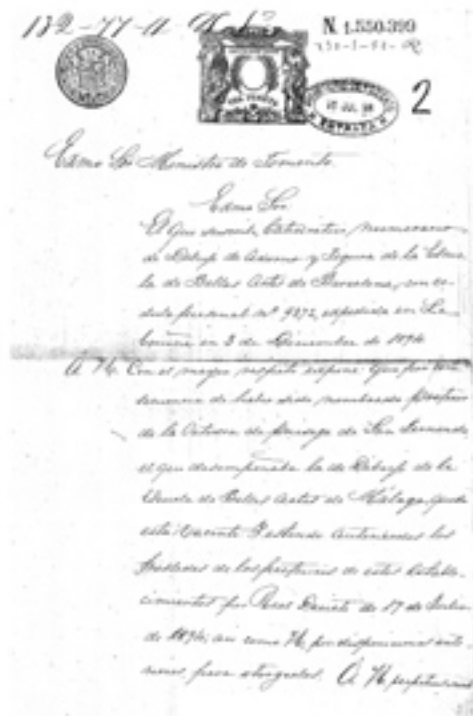 N. 1.550.399
2
Exmo Sor Ministro de Fomento
Exmo Sor
El que suscribe, Catedratico numerario
de Dibujo de Adorno y Figura de la Escue
la de Bellas Artes de Barcelona, con ce
dula personal nº 9272, expedida en La
Coruña en 3 de Diciembre de 1894
A V.E. Con el mayor respeto expone: que por con
secuencia de haber sido nombrado Profesor
de la Catedra de paisaje de San Fernando
el que desempeñaba la de Dibujo de la
Escuela de Bellas Artes de Málaga, queda
esta vacante y estando los
de los profesores de estos estable
cimientos por Real Decreto de 17 de Julio
de 1894, asi como V.E. por disposiciones ante
riores para otorgarles. A V.E.